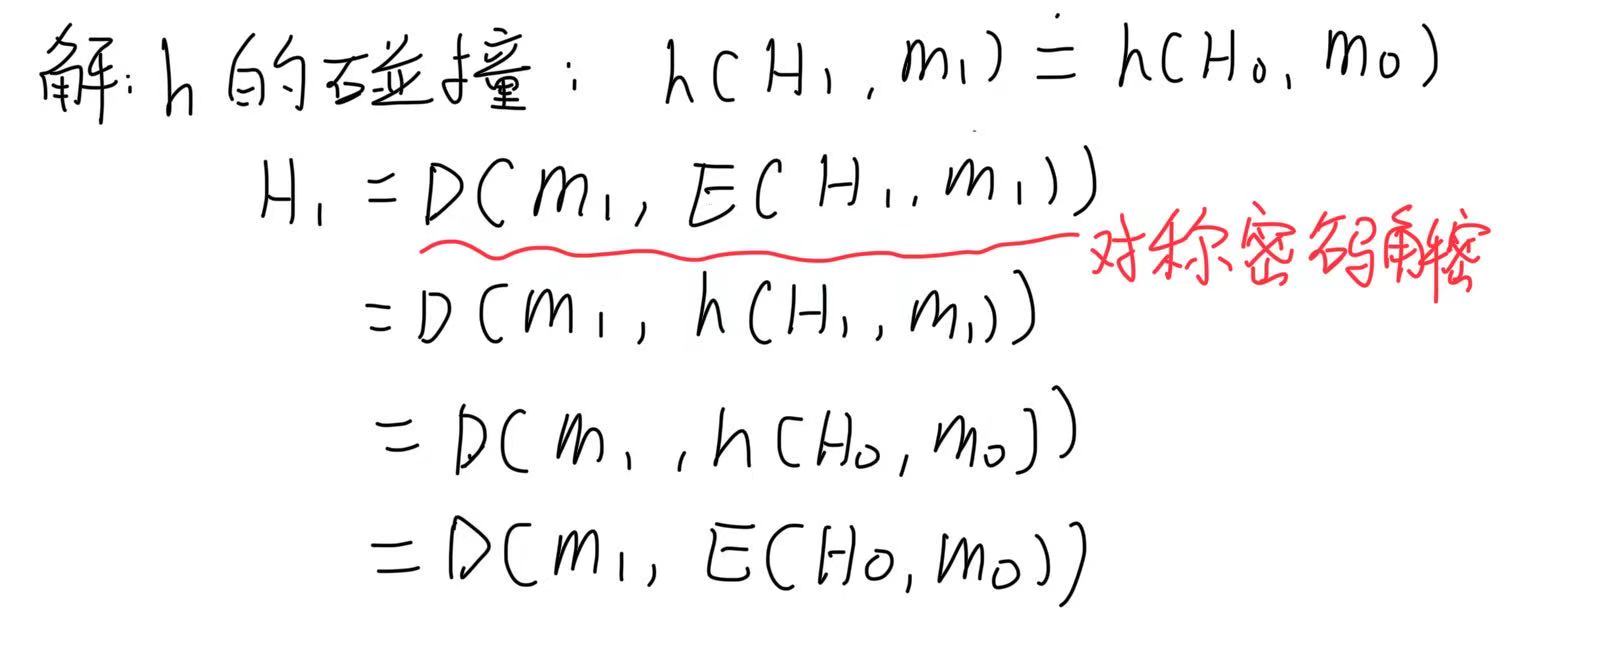 解: h 的碰撞: h(H₁, m₁) = h(H₀, m₀)
H₁ = D(m₁, E(H₁, m₁))
对称密码解密
= D(m₁, h(H₁, m₁))
= D(m₁, h(H₀, m₀))
= D(m₁, E(H₀, m₀))